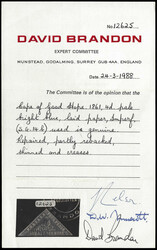 No. 12625
DAVID BRANDON
EXPERT COMMITTEE
MUNSTEAD, GODALMING, SURREY GU8 4AX, ENGLAND
Date 24-3-1988
The Committee is of the opinion that the
Cape of Good Hope. 1861, 4d pale
bright blue, laid paper, imperf
(S.G.14b) used is genuine
Repaired, partly rebacked,
thinned and creases
David Brandon